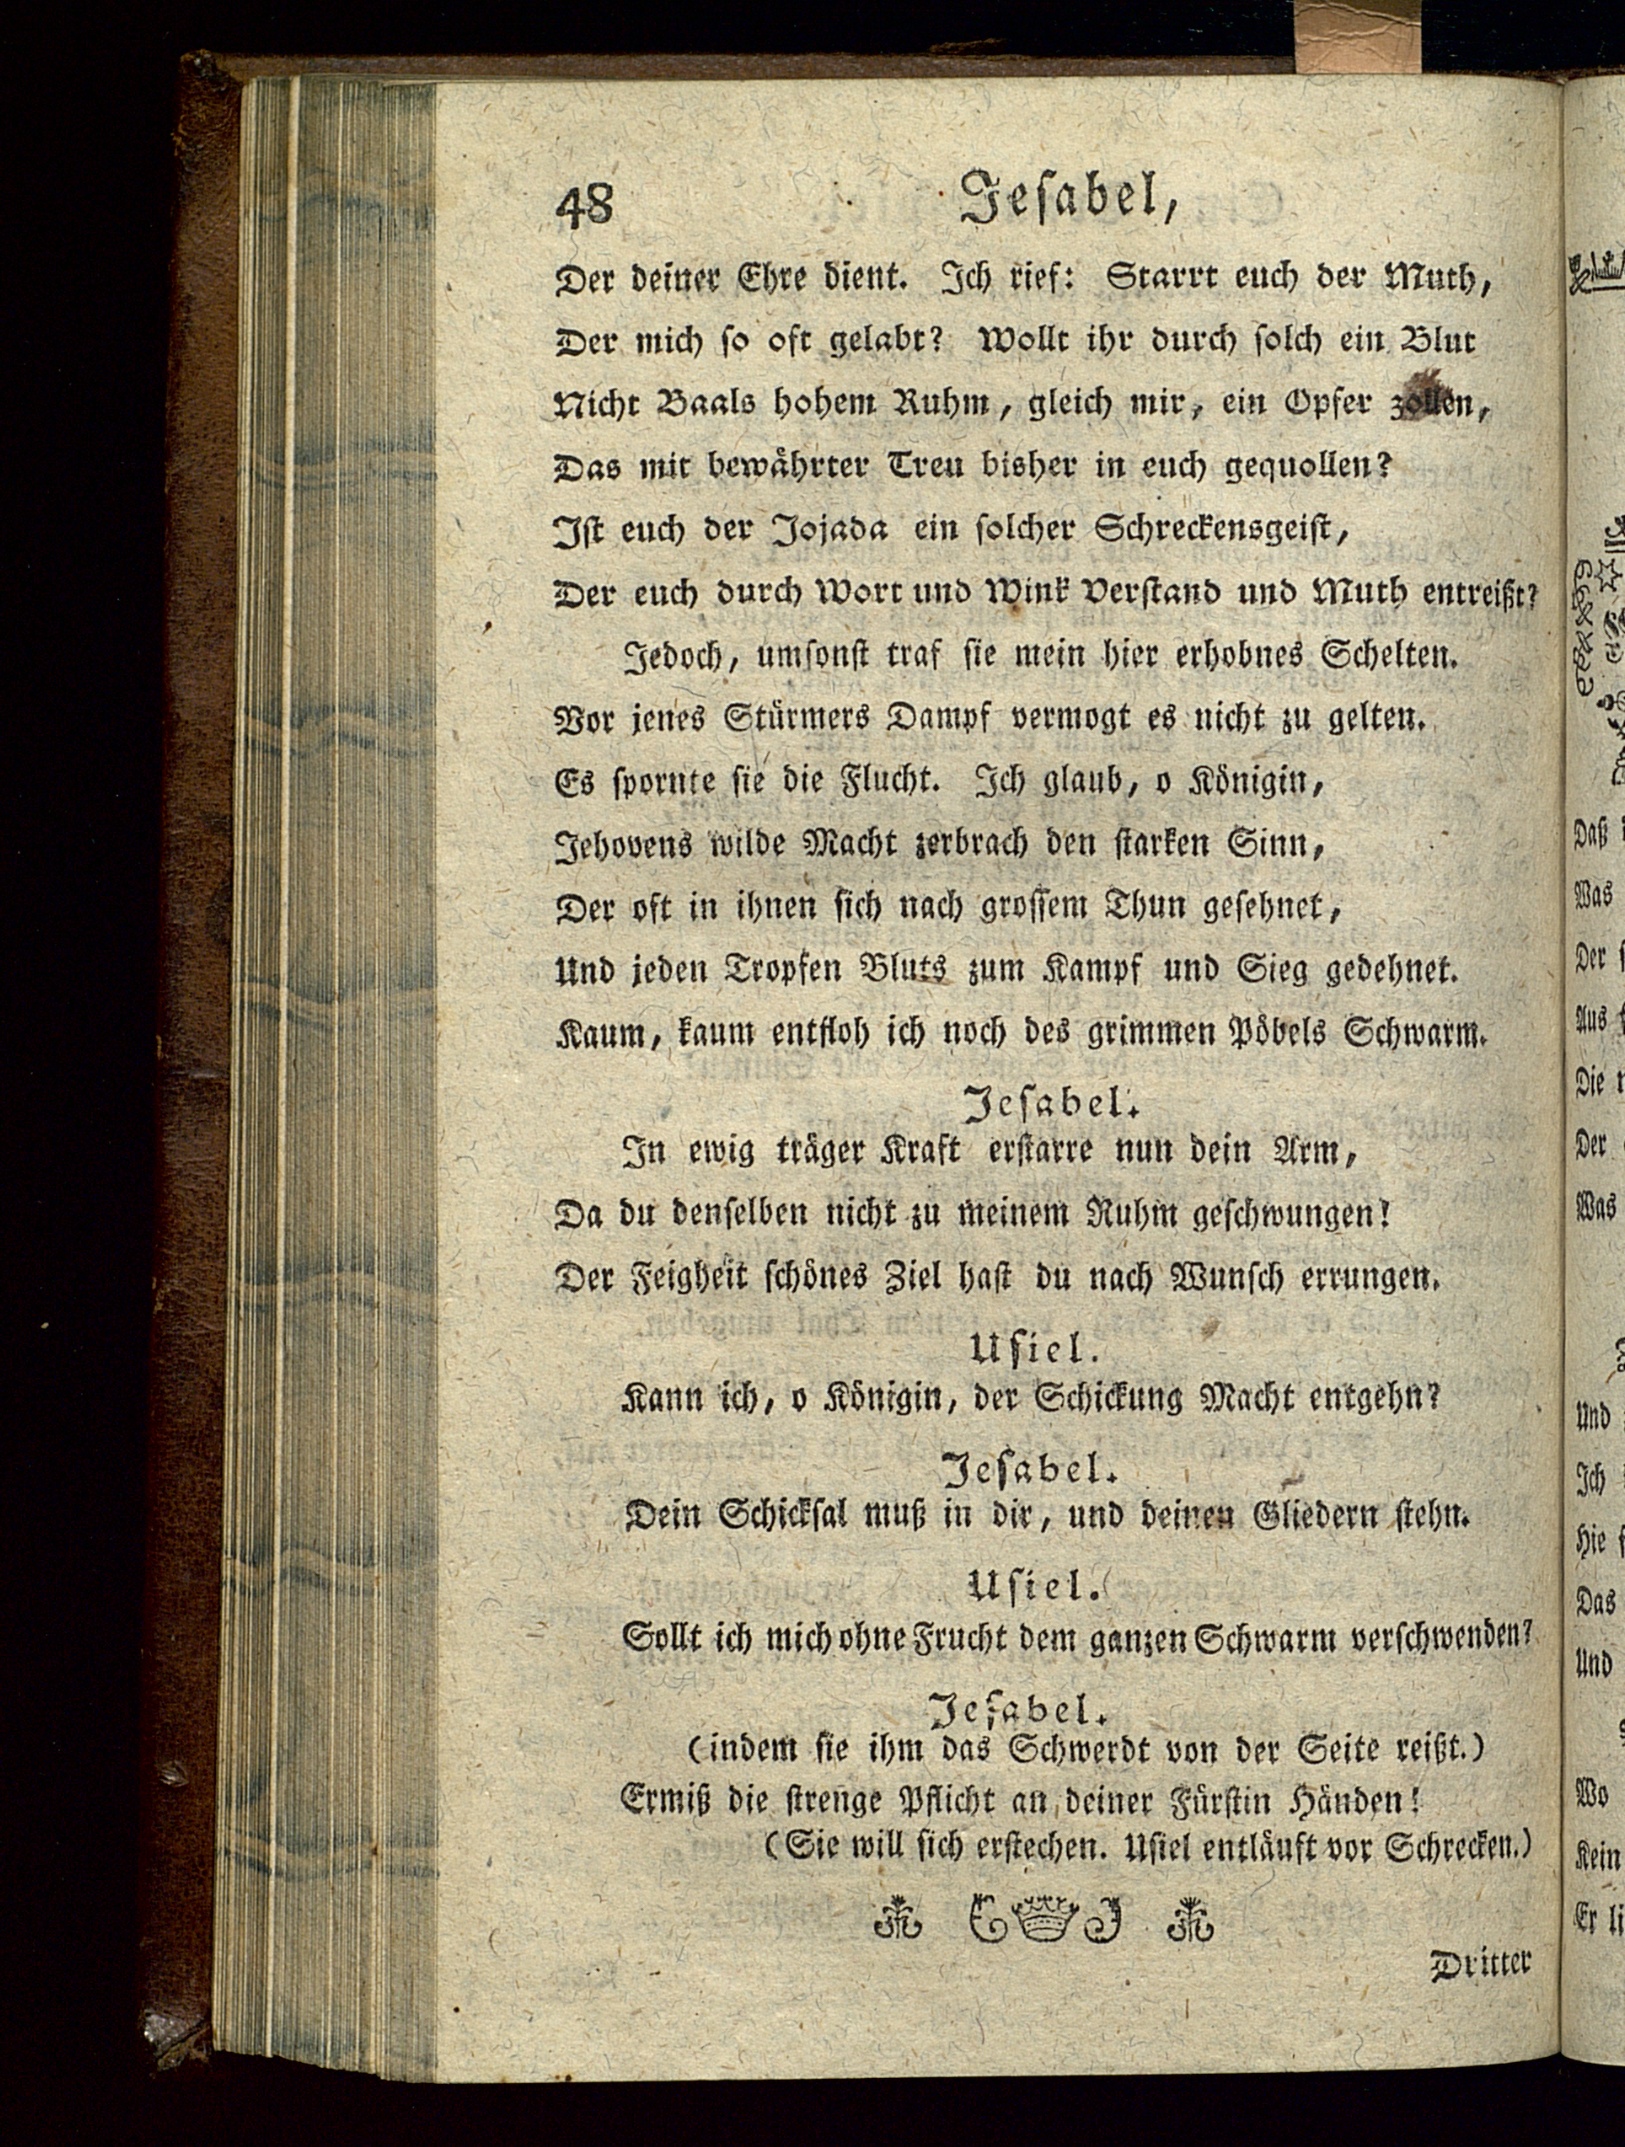 48 Jeſabel,
Der deiner Ehre dient. Ich rief: Starrt euch der Muth,
Der mich ſo oft gelabt? Wollt ihr durch ſolch ein Blut
Nicht Baals hohem Ruhm, gleich mir, ein Opfer zollen,
Das mit bewährter Treu bisher in euch gequollen?
Iſt euch der Jojada ein ſolcher Schreckensgeiſt,
Der euch durch Wort und Wink Verſtand und Muth entreißt?
Jedoch, umſonſt traf ſie mein hier erhobnes Schelten.
Vor jenes Stürmers Dampf vermogt es nicht zu gelten.
Es ſpornte ſie die Flucht. Ich glaub, o Königin,
Jehovens wilde Macht zerbrach den ſtarken Sinn,
Der oft in ihnen ſich nach groſſem Thun geſehnet,
Und jeden Tropfen Bluts zum Kampf und Sieg gedehnet.
Kaum, kaum entfloh ich noch des grimmen Pöbels Schwarm.
Jeſabel.
In ewig träger Kraft erſtarre nun dein Arm,
Da du denſelben nicht zu meinem Ruhm geſchwungen!
Der Feigheit ſchönes Ziel haſt du nach Wunſch errungen.
Uſiel.
Kann ich, o Königin, der Schickung Macht entgehn?
Jeſabel.
Dein Schickſal muß in dir, und deinen Gliedern ſtehn.
Uſiel.
Sollt ich mich ohne Frucht dem ganzen Schwarm verſchwenden?
Jeſabel.
(indem ſie ihm das Schwerdt von der Seite reißt.)
Ermiß die ſtrenge Pflicht an deiner Fürſtin Händen!
(Sie will ſich erſtechen. Uſiel entläuft vor Schrecken.)
Dritter
Daß
Was
Der
Aus
Die
Der
Was
Und
Ich
Hie
Das
Und
Wo
Kein
Er